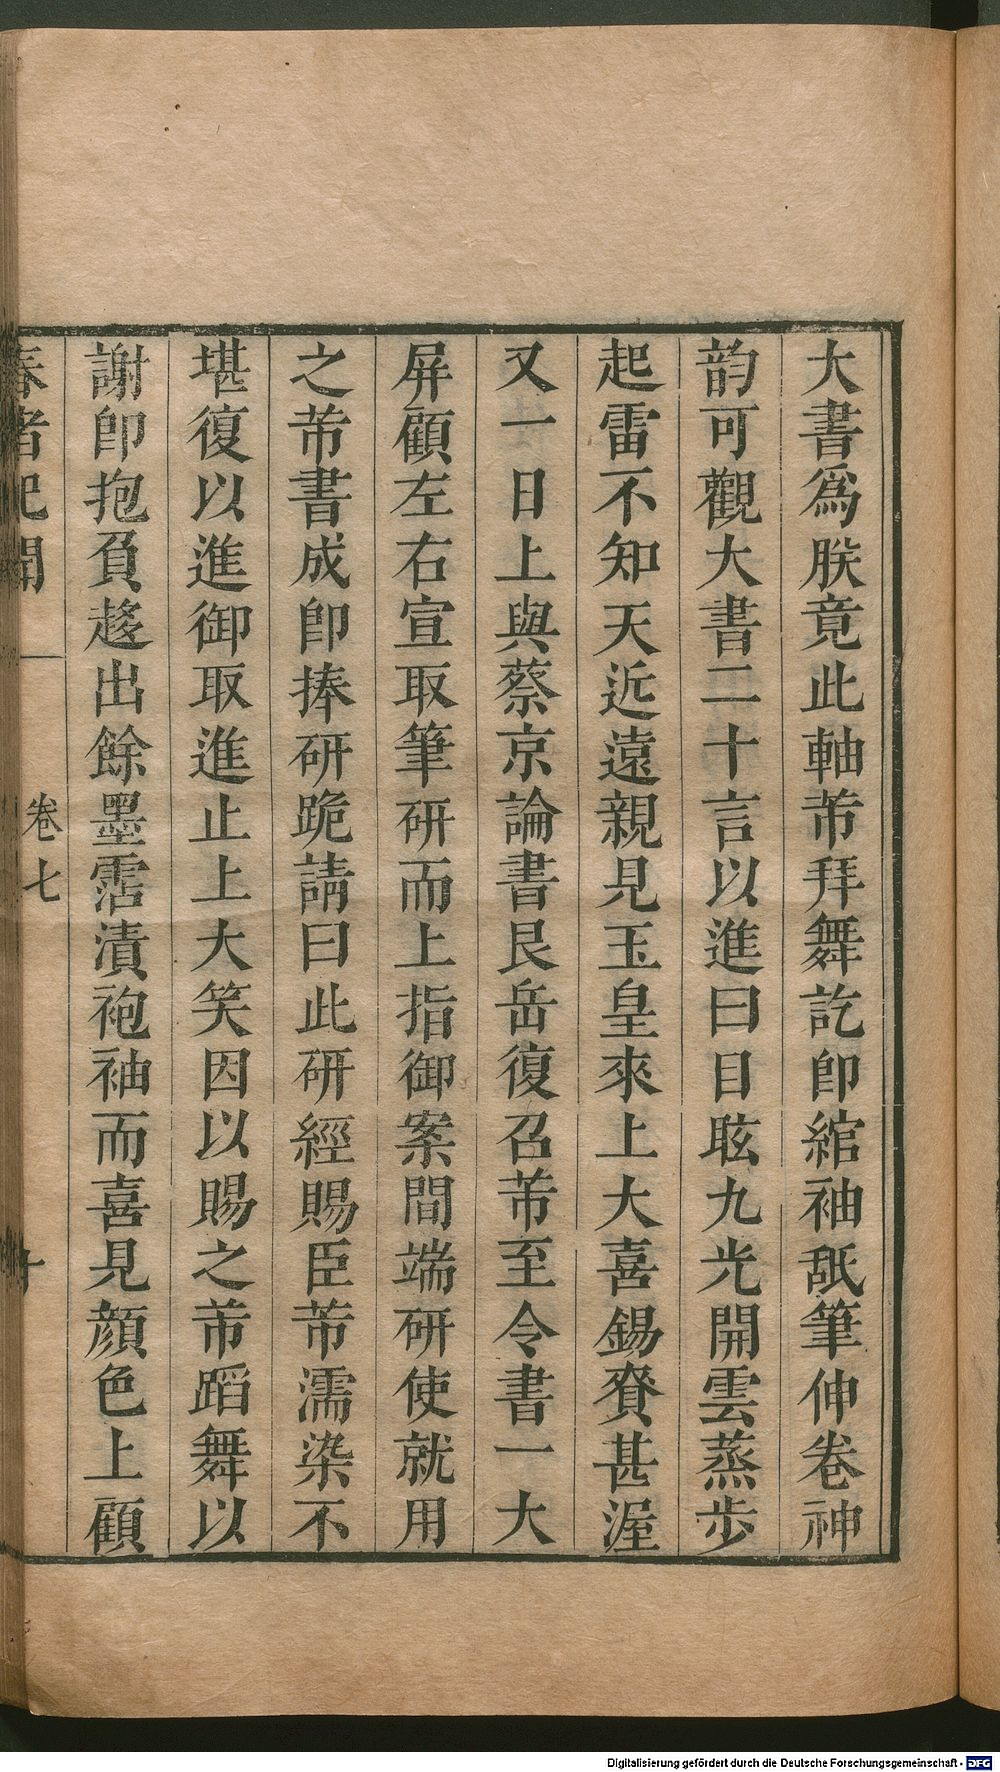 大書爲朕竟此軸芾拜舞訖卽綰袖舐筆伸卷神
韵可觀大書二十言以進曰目眩九光開雲蒸步
起雷不知天近遠親見玉皇來上大喜錫賚甚渥
又一日上與蔡京論書艮岳復召芾至令書一大
屏顧左右宣取筆研而上指御案間端研使就用
之芾書成卽捧研跪請曰此研經賜臣芾濡染不
堪復以進御取進止上大笑因以賜之芾蹈舞以
謝卽抱負趍出餘墨霑漬袍袖而喜見顏色上顧
春渚紀聞 卷七 十
Digitalisierung gefördert durch die Deutsche Forschungsgemeinschaft - DFG